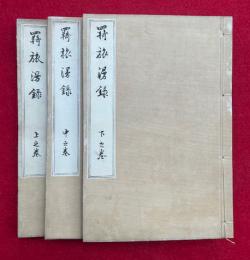 羇旅漫録
下之巻
羇旅漫録
中之巻
羇旅漫録
上之巻